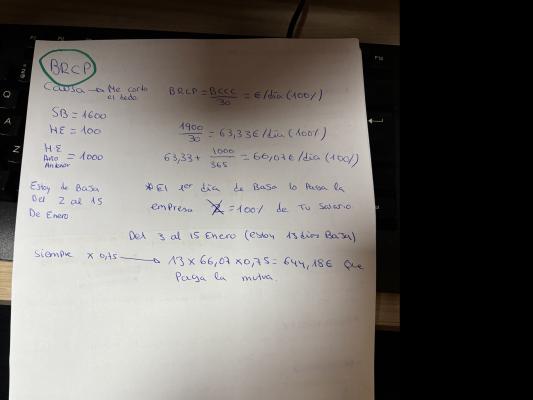 BRCP
Causa → Me corto el dedo
BRCP = BCCC/30 = €/día (100%)
SB = 1600
HE = 100
1900/30 = 63,33€/día (100%)
HE Año Anterior = 1000
63,33 + 1000/365 = 66,07€/día (100%)
Estoy de Baja
Del 2 al 15
De Enero
* El 1er día de Baja lo Paga la
empresa = 100% de Tu Salario.
Del 3 al 15 Enero (estoy 13 días Baja)
Siempre x 0,75 → 13 x 66,07 x 0,75 = 644,18€ que
Paga la mutua.
Q
A